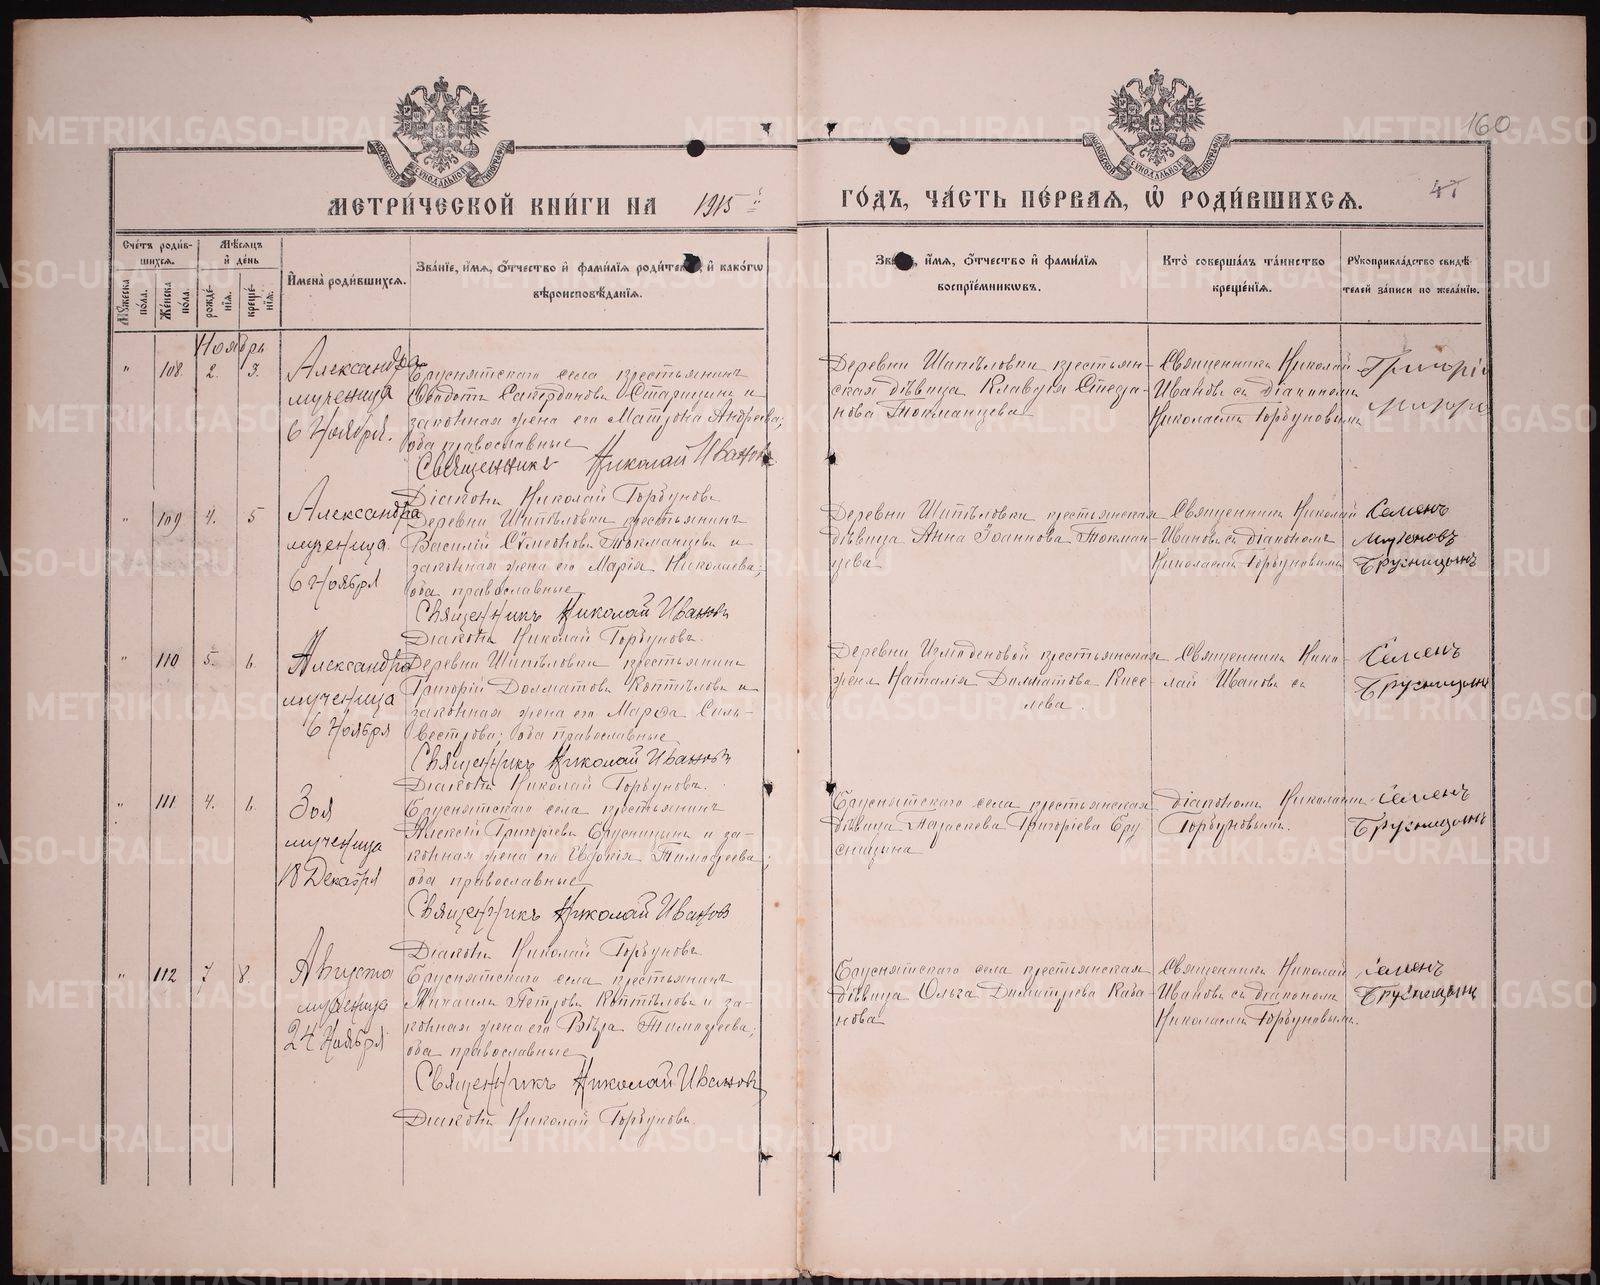 160
МОСКОВСКОЙ СѴНОДАЛЬНОЙ ТИПОГРАФІИ
МОСКОВСКОЙ СѴНОДАЛЬНОЙ ТИПОГРАФІИ
МЕТРИ́ЧЕСКОЙ КНИ́ГИ НА 1915й ГО́ДЪ, ЧА́СТЬ ПЕ́РВАЯ, Ѡ РОДИ́ВШИХСЯ.
Сче́тъ роди́вшихся.
Му́жеска по́ла.
Же́нска по́ла.
Мѣ́сяцъ и де́нь
рожде́нія.
креще́нія.
И́мена роди́вшихся.
Зва́ніе, и́мя, о́тчество и фами́лія роди́телей, и како́гѡ вѣроисповѣ́данія.
и́мя, о́тчество и фами́лія воспріе́мниковъ.
Кто̀ соверша́лъ та́инство креще́нія.
Рукоприкла́дство свидѣ́телей за́писи по жела́нію.
Ноябрь
" 108 2. 3.
Александра
мученица
6 Ноября.
Бруснятскаго села крестьянинъ
законная жена его Матрона Андреева;
оба православные
Священникъ Николай Ивановъ
Діаконъ Николай Горбуновъ
Деревни Шипѣловки крестьян-
ская дѣвица Клавдія Степа-
нова Токманцева
Священникъ Николай
Ивановъ съ діакономъ
Николаемъ Горбуновымъ
" 109 4. 5
Александра
мученица
6 Ноября
Деревни Шипѣловки крестьянинъ
Василій Сѵмеоновъ Токманцевъ и
законная жена его Марія Николаева;
оба православные
Священникъ Николай Ивановъ
Діаконъ Николай Горбуновъ.
Деревни Шипѣловки крестьянская
дѣвица Анна Іоаннова Токман-
цева
Священникъ Николай
Ивановъ съ діакономъ
Николаемъ Горбуновымъ
Семенъ
Брусницынъ
" 110 5. 6.
Александра
мученица
6 Ноября
Деревни Шипѣловки крестьянинъ
Григорій Долматовъ Коптѣловъ и
законная жена его Марѳа Силь-
вестрова; оба православные
Священникъ Николай Ивановъ
Діаконъ Николай Горбуновъ.
Деревни Измоденовой крестьянская
жена Наталія Долматова Кисе-
лева.
Священникъ Нико-
лай Ивановъ съ
Семенъ
Брусницынъ
" 111 4. 6.
Зоя
мученица
18 Декабря
Бруснятскаго села крестьянинъ
Алексій Григоріевъ Брусницынъ и за-
конная жена его Евдокія Тимоѳеева;
оба православные
Священникъ Николай Ивановъ
Діаконъ Николай Горбуновъ
Бруснятскаго села крестьянская
дѣвица Параскева Григоріева Бру-
сницына
Діакономъ Николаемъ
Горбуновымъ.
Семенъ
Брусницынъ
" 112 7 8.
Августа
мученица
24 Ноября
Бруснятскаго села крестьянинъ
Михаилъ Петровъ Коптѣловъ и за-
конная жена его Вѣра Тимоѳеева;
оба православные
Священникъ Николай Ивановъ
Діаконъ Николай Горбуновъ.
Бруснятскаго села крестьянская
дѣвица Ольга Димитріева Каба-
нова
Священникъ Николай
Ивановъ съ діакономъ
Николаемъ Горбуновымъ.
Семенъ
Брусницынъ
METRIKI.GASO-URAL.RU